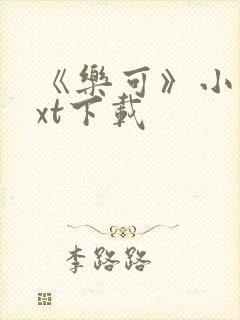 《樂可》小
xt下載
李路路